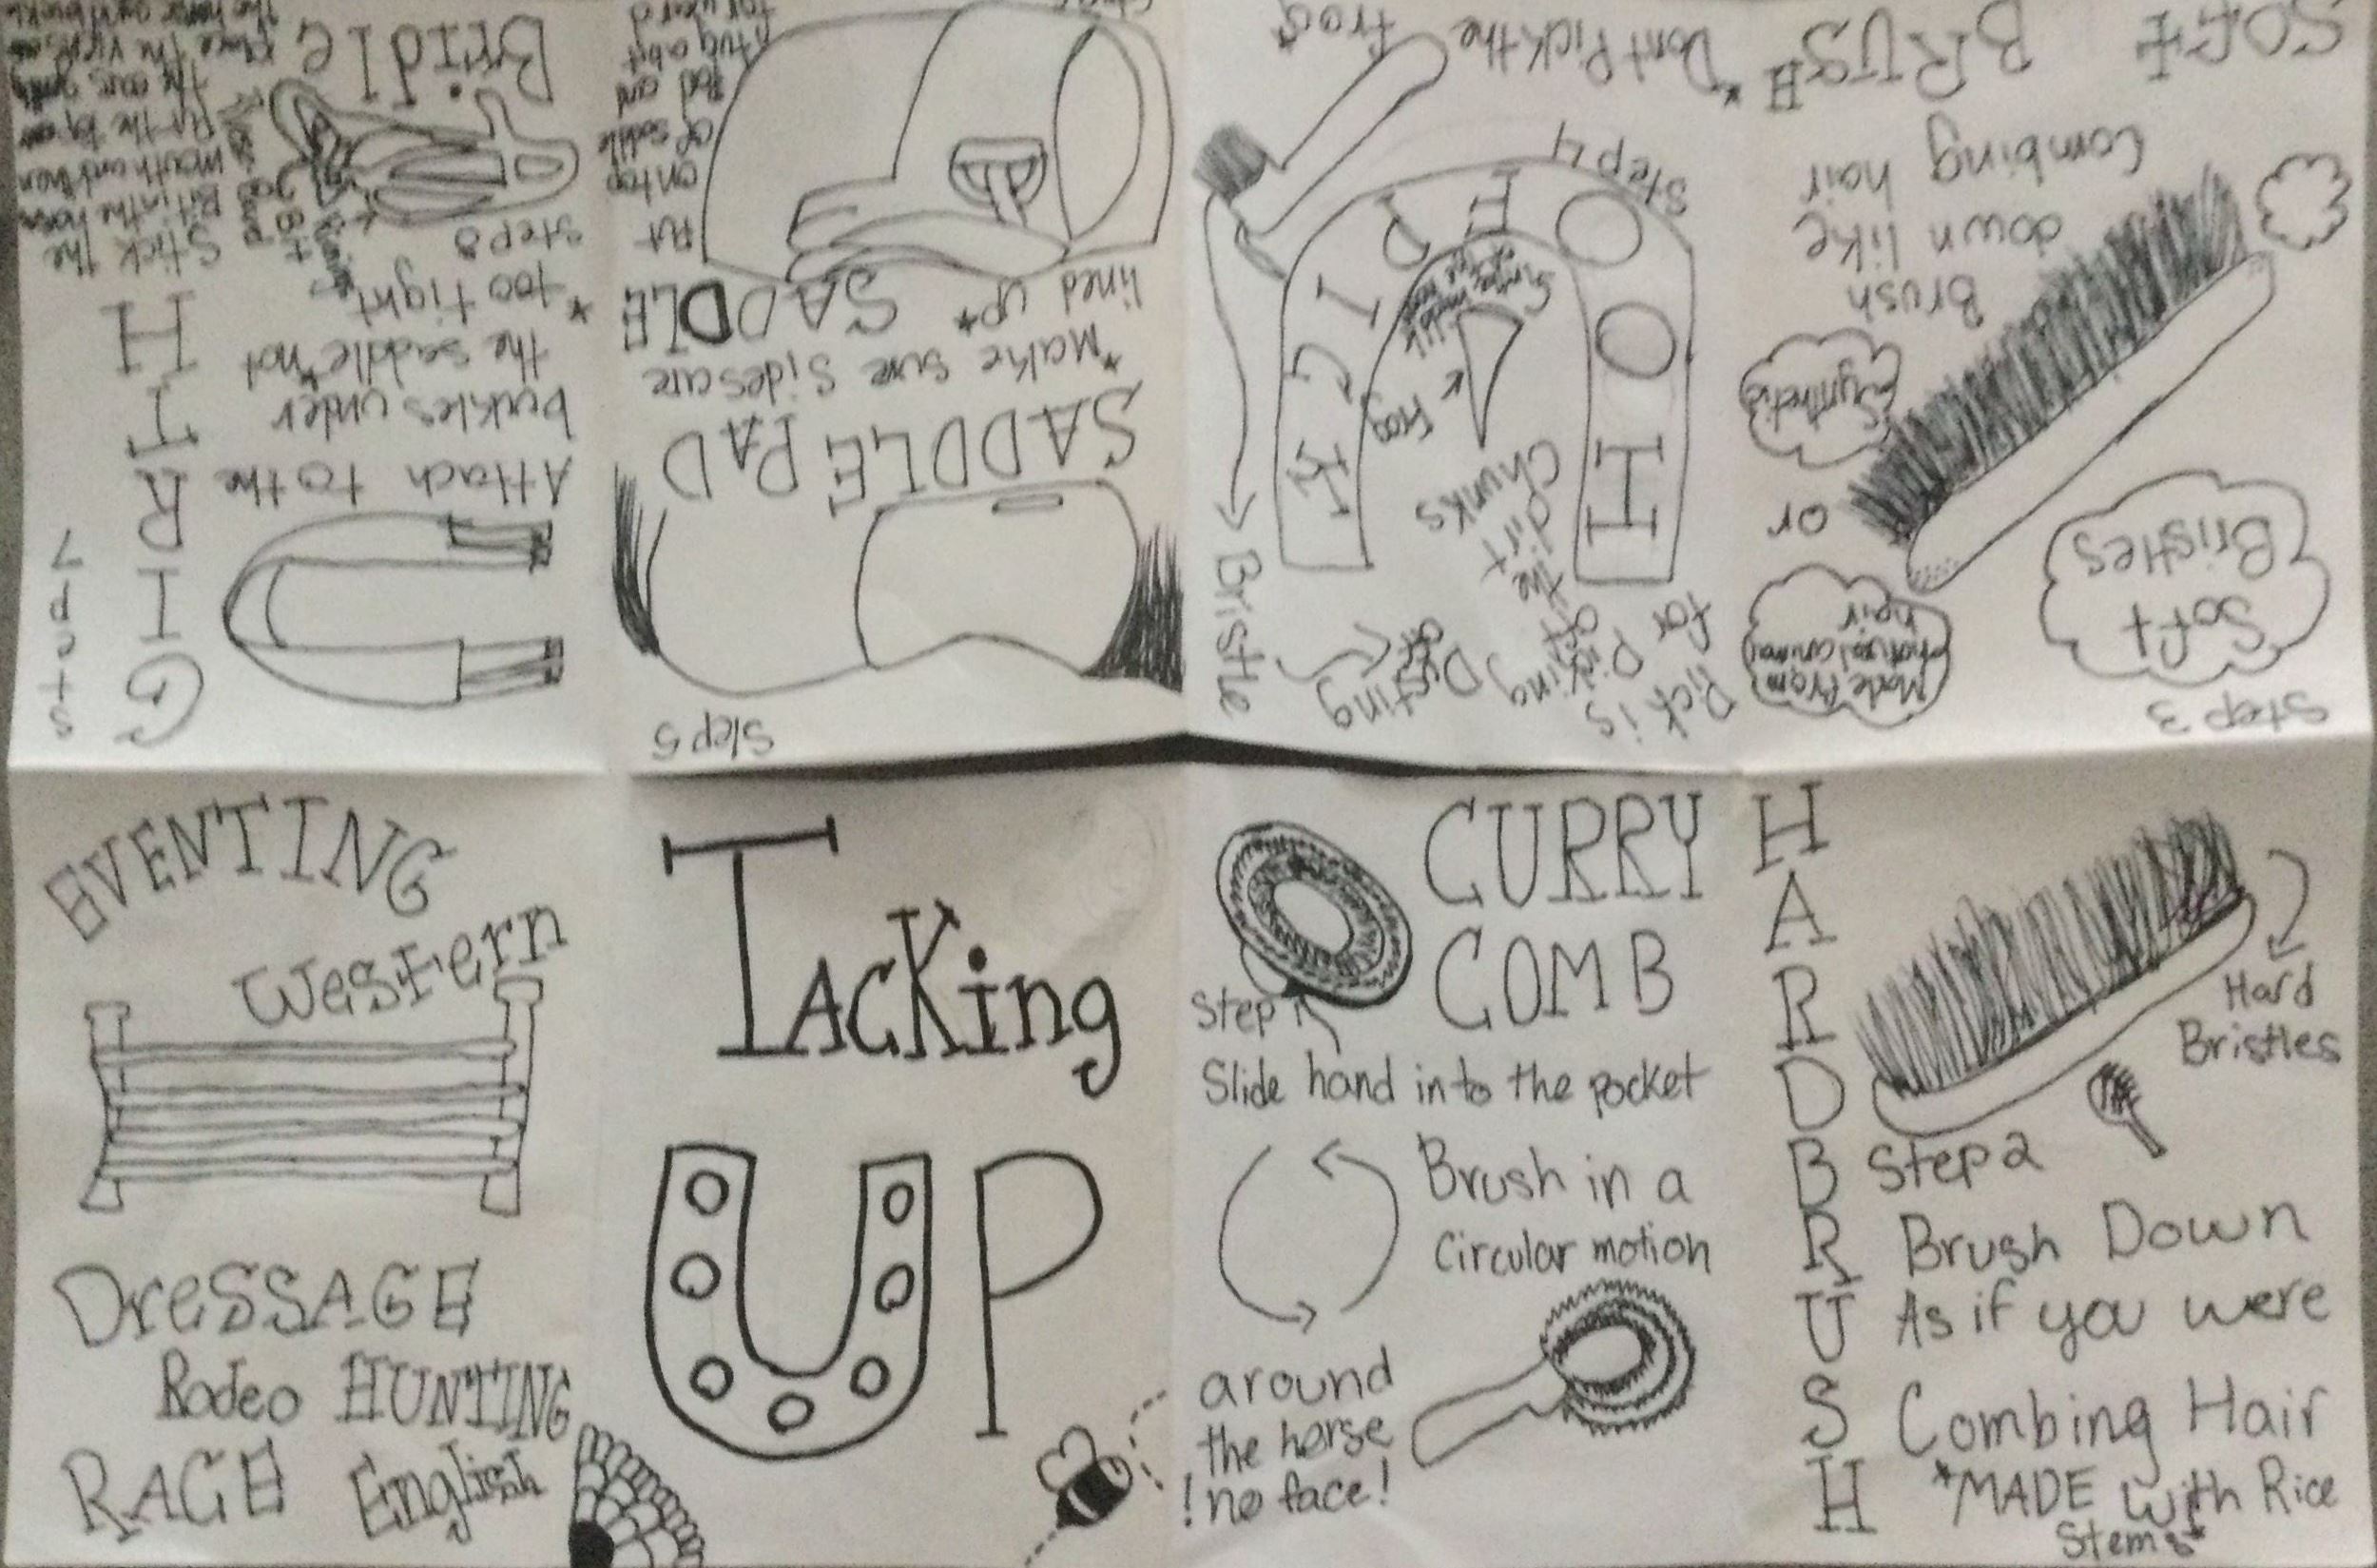 Tacking
UP
CURRY
COMB
Step 1
Slide hand into the pocket
Brush in a
Circular motion
around
the horse
!no face!
HARD
BRUSH
Hard
Bristles
Step 2
Brush Down
As if you were
Combing Hair
*MADE with Rice
Stems*
Step 3
Soft
Bristles
Made From
natural animal
hair
or
Synthetic
Brush
down like
Combing hair
SOFT
BRUSH
Step 4
HOOF PICK
Pick is
for Picking
off
the
dirt
Chunks
Dusting
off
Bristle
Frog
*Dont Pick the
frog*
Step 5
SADDLE PAD
*Make sure sides are
lined up*
SADDLE
Put
on top
of saddle
Pad and
tug a bit
forward
Step 7
GIRTH
Attach to the
buckles under
the saddle *not
too tight*
Step 8
Bridle
Stick the
Bit in the horses
mouth and then
Put the top over
the ears gently
Place the
EVENTING
Western
DresSAGE
Rodeo HUNTING
RACE English